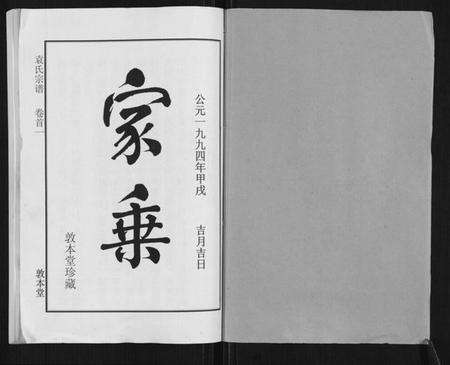 公元一九九四年甲戌 吉月吉日
家乘
敦本堂珍藏
袁氏宗谱 卷首一
敦本堂